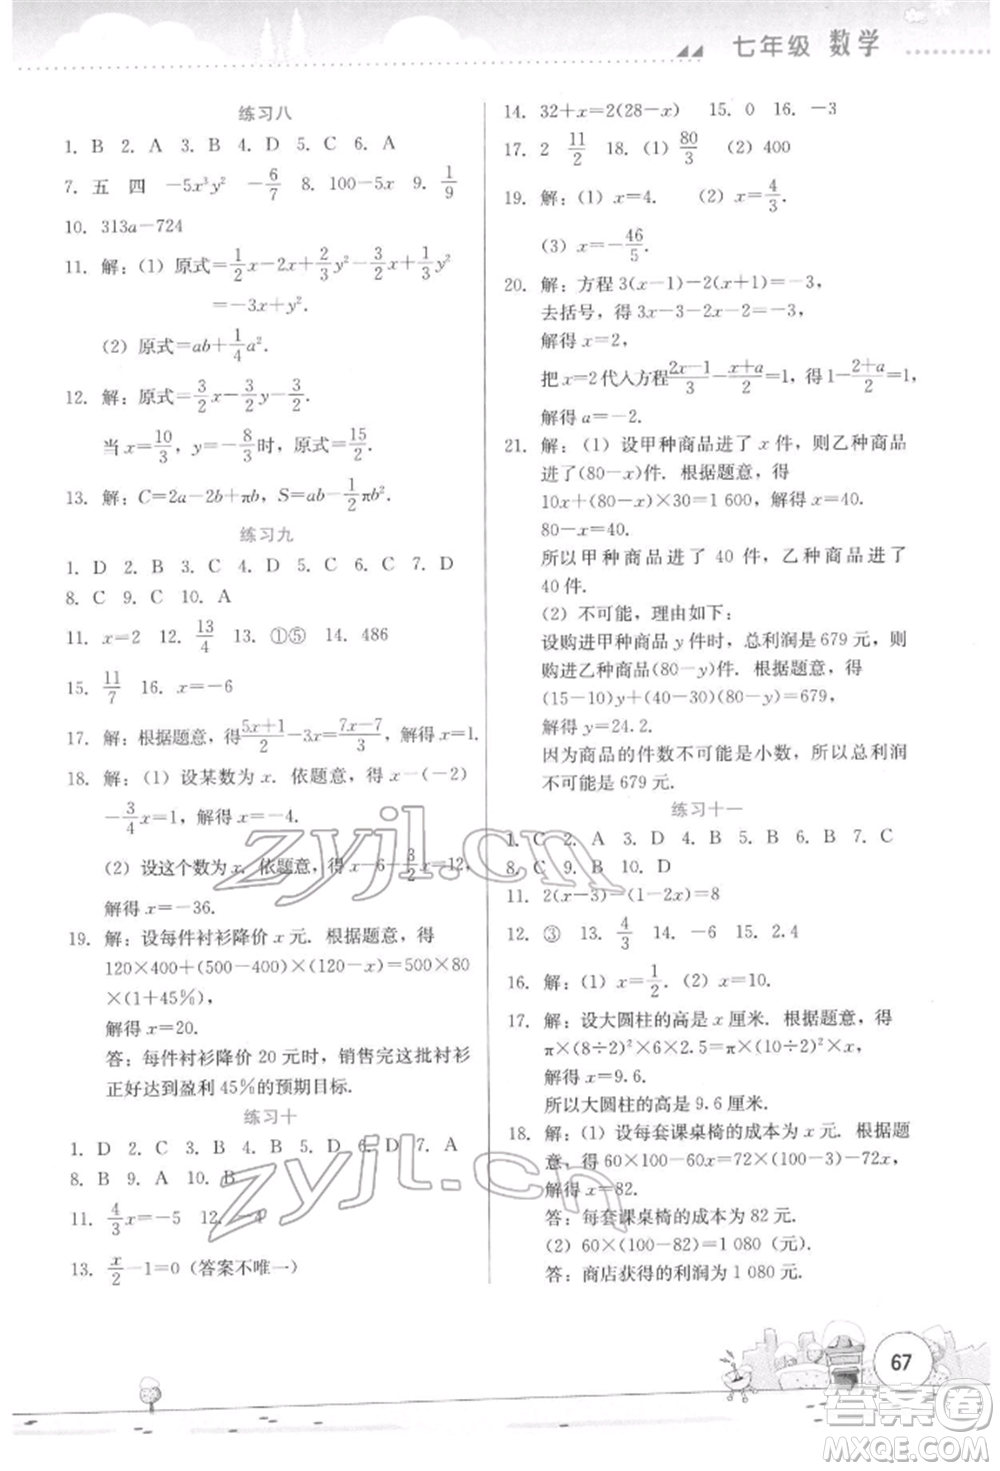 七年级 数学
练习八
1. B 2. A 3. B 4. D 5. C 6. A
7. 五 四 -5x³y² -6/7 8. 100-5x 9. 1/9
10. 313a-724
11. 解:(1) 原式=1/2x-2x+2/3y²-3/2x+1/3y²
=-3x+y².
(2) 原式=ab+1/4a².
12. 解:原式=3/2x-3/2y-3/2.
当 x=10/3, y=-8/3时, 原式=15/2.
13. 解:C=2a-2b+πb, S=ab-1/2πb².
练习九
1. D 2. B 3. C 4. D 5. C 6. C 7. D
8. C 9. C 10. A
11. x=2 12. 13/4 13. ①⑤ 14. 486
15. 11/7 16. x=-6
17. 解:根据题意, 得5x+1/2-3x=7x-7/3, 解得x=1.
18. 解:(1) 设某数为 x. 依题意, 得 x-(-2)
-3/4x=1, 解得 x=-4.
(2) 设这个数为 x. 依题意, 得 x-6-3/2x=12,
解得 x=-36.
19. 解:设每件衬衫降价 x 元. 根据题意, 得
120×400+(500-400)×(120-x)=500×80
×(1+45%),
解得 x=20.
答:每件衬衫降价 20 元时, 销售完这批衬衫
正好达到盈利 45%的预期目标.
练习十
1. D 2. C 3. B 4. B 5. D 6. D 7. A
8. B 9. A 10. B
11. 4/3x=-5 12. -4
13. x/2-1=0 (答案不唯一)
14. 32+x=2(28-x) 15. 0 16. -3
17. 2 11/2 18. (1) 80/3 (2) 400
19. 解:(1) x=4. (2) x=4/3.
(3) x=-46/5.
20. 解:方程 3(x-1)-2(x+1)=-3,
去括号, 得 3x-3-2x-2=-3,
解得 x=2,
把 x=2代入方程2x-1/3-x+a/2=1, 得1-2+a/2=1,
解得 a=-2.
21. 解:(1) 设甲种商品进了 x 件, 则乙种商品
进了(80-x)件. 根据题意, 得
10x+(80-x)×30=1 600, 解得 x=40.
80-x=40.
所以甲种商品进了 40 件, 乙种商品进了
40 件.
(2) 不可能, 理由如下:
设购进甲种商品 y 件时, 总利润是 679 元, 则
购进乙种商品(80-y)件. 根据题意, 得
(15-10)y+(40-30)(80-y)=679,
解得 y=24.2.
因为商品的件数不可能是小数, 所以总利润
不可能是 679 元.
练习十一
1. C 2. A 3. D 4. B 5. B 6. B 7. C
8. C 9. B 10. D
11. 2(x-3)-(1-2x)=8
12. ③ 13. 4/3 14. -6 15. 2.4
16. 解:(1) x=1/2. (2) x=10.
17. 解:设大圆柱的高是 x 厘米. 根据题意, 得
π×(8÷2)²×6×2.5=π×(10÷2)²×x,
解得 x=9.6.
所以大圆柱的高是 9.6 厘米.
18. 解:(1) 设每套课桌椅的成本为 x 元. 根据题
意, 得 60×100-60x=72×(100-3)-72x,
解得 x=82.
答:每套课桌椅的成本为 82 元.
(2) 60×(100-82)=1 080 (元).
答:商店获得的利润为 1 080 元.
67
zyjl.cn
zyjl.cn
答案圈
MXQE.COM